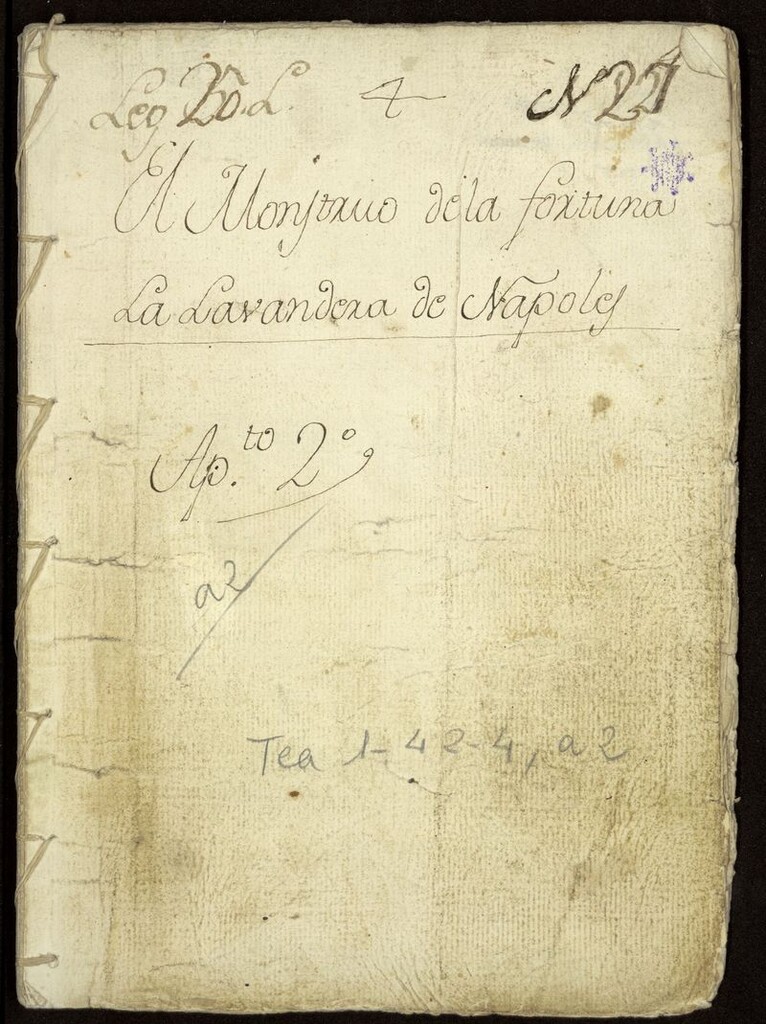 Leg 20. L. 4 N 22
El Monstruo de la fortuna
La Lavandera de Napoles
Ap.to 2º
a2
Tea 1-42-4, a 2